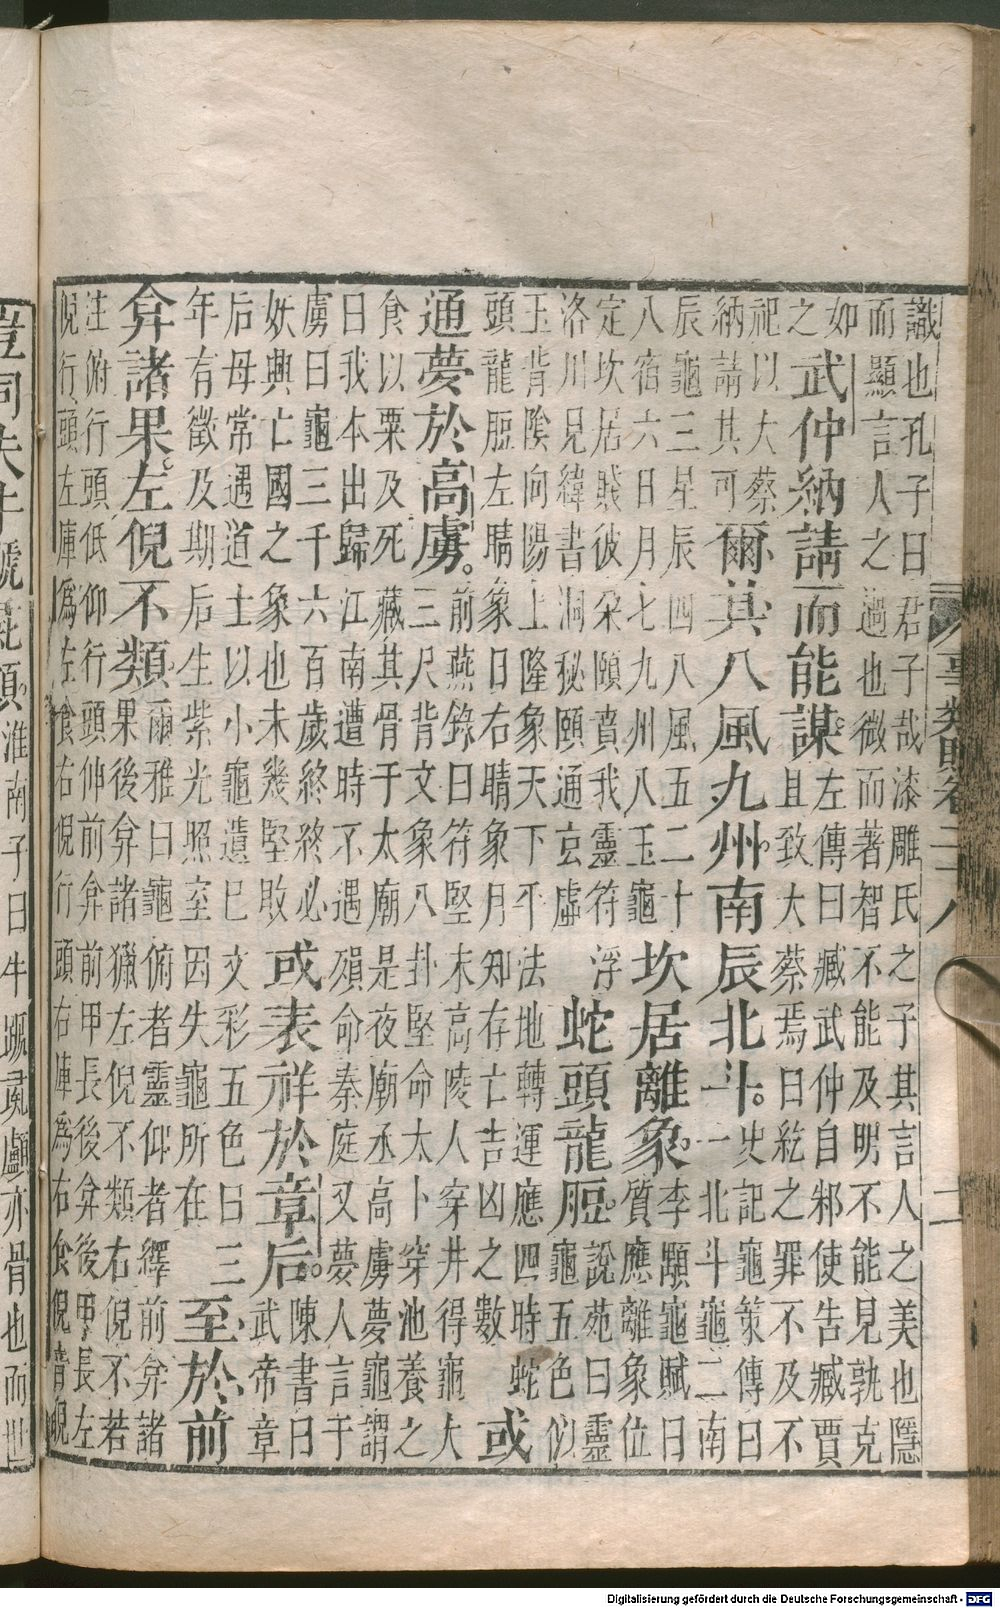 識也孔子曰君子哉漆雕氏之子其言人之美也隱
而顯言人之過也微而著智不能及明不能見孰克
如
之
武仲納請而能謀
左傳曰臧武仲自邾使告臧賈
且致大蔡焉曰紇之罪不及不
祀以大蔡
納請其可
爾其八風九州南辰北斗
史記龜策傳曰
一北斗龜二南
辰龜三星辰四八風五二十
八宿六日月七九州八玉龜
坎居離象
李顒龜賦曰
質應離象位
定坎居賤彼朵頤賁我靈符浮
洛川見緯書洞秘頤通玄虛
蛇頭龍脰
說苑曰靈
龜五色似
玉背陰向陽上隆象天下平法地轉運應四時蛇
頭龍脰左睛象日右睛象月知存亡吉凶之數
或
通夢於高虜
前燕錄曰符堅末高陵人穿井得龜大
三尺背文象八卦堅命太卜穿池養之
食以粟及死藏其骨于太廟是夜廟丞高虜夢龜謂
曰我本出歸江南遭時不遇殞命秦庭又夢人言于
虜曰龜三千六百歲終終必
妖興亡國之象也未幾堅敗
或表祥於章后
陳書曰
武帝章
后母常遇道士以小龜遺巳文彩五色曰三
年有徵及期后生紫光照室因失龜所在
至於前
弇諸果左倪不類
爾雅曰龜俯者靈仰者繹前弇諸
果後弇諸獵左倪不類右倪不若
注俯行頭低仰行頭仰前弇前甲長後弇後甲長左
倪行頭左庳為左食右倪行頭右庳為右食倪音睨
事類賦卷二十八
淮南子曰牛蹏彘顱亦骨也而世
Digitalisierung gefördert durch die Deutsche Forschungsgemeinschaft - DFG